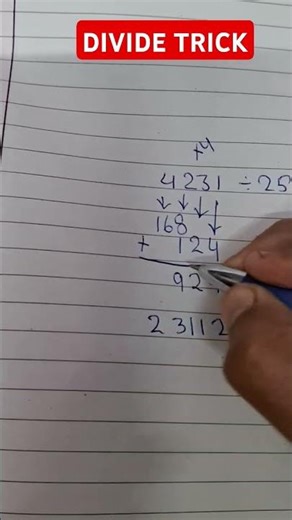 DIVIDE TRICK
×4
4231 ÷ 25
168
+ 124
92
23112